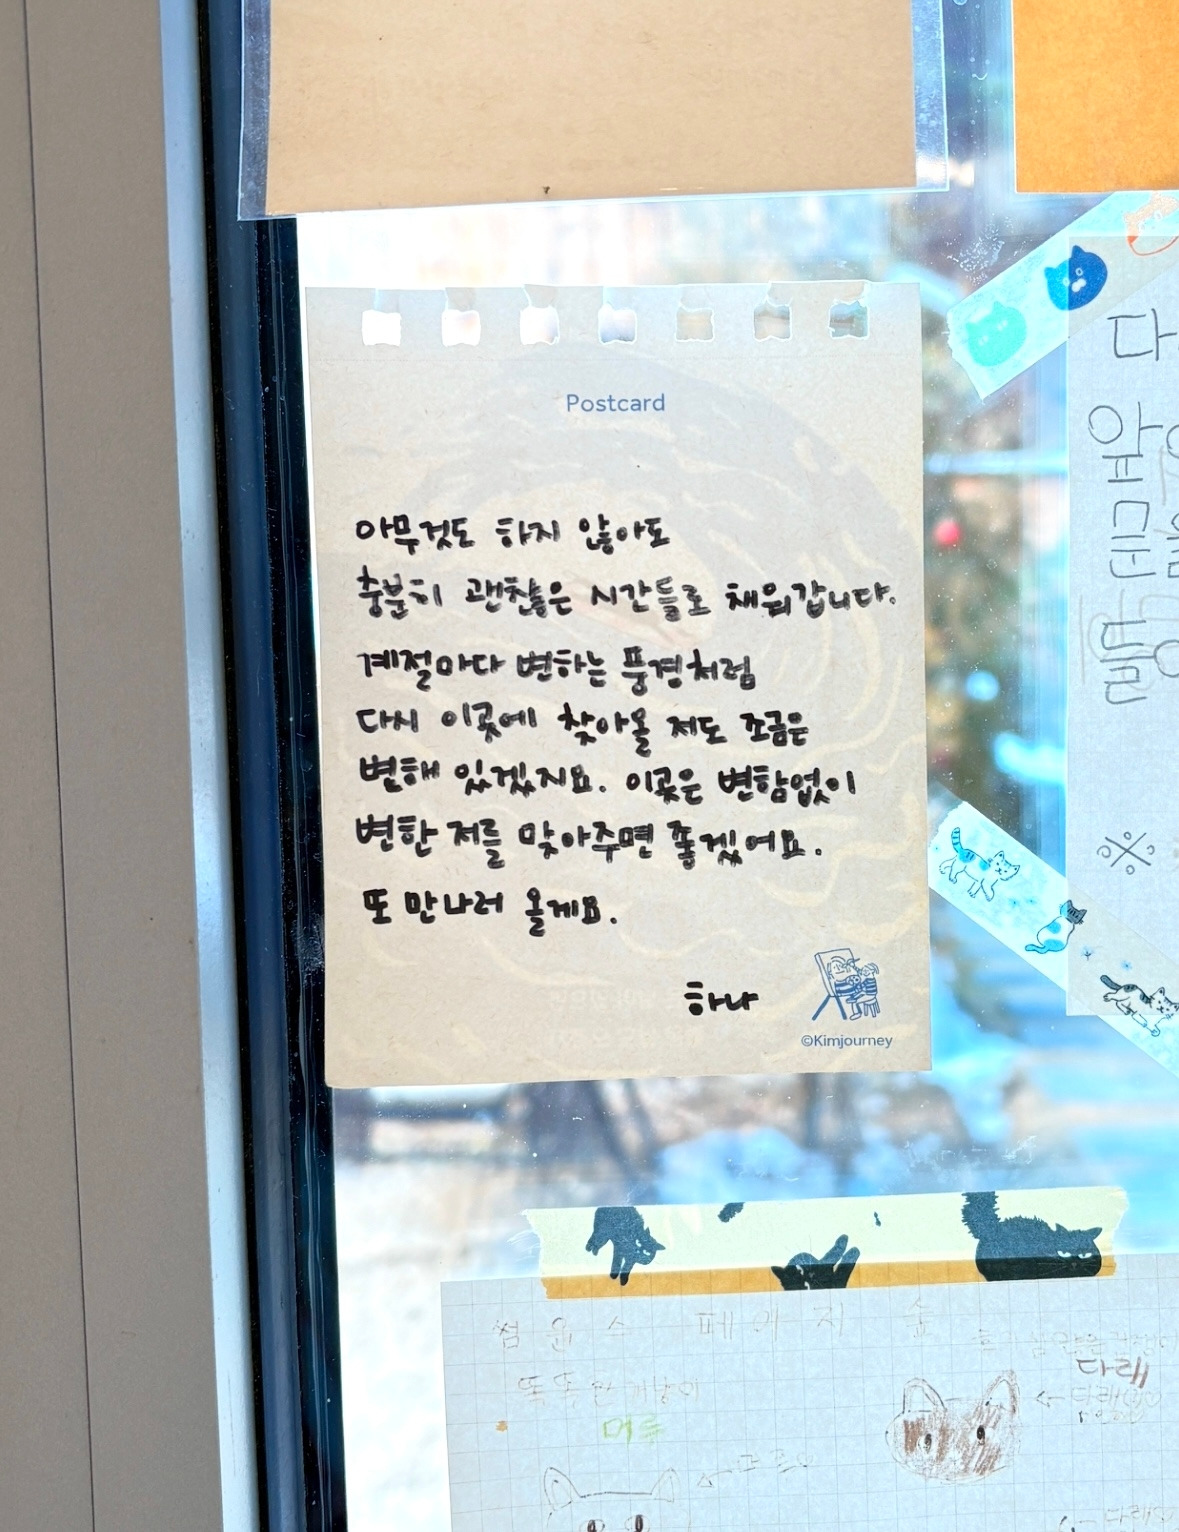 Postcard
아무것도 하지 않아도
충분히 괜찮은 시간들로 채워갑니다.
계절마다 변하는 풍경처럼
다시 이곳에 찾아올 저도 조금은
변해 있겠지요. 이곳은 변함없이
변한 저를 맞아주면 좋겠어요.
또 만나러 올게요.
하나
©Kimjourney
다
※
썸 원 스 페이지 숲
다래
똑똑한 고양이
머루